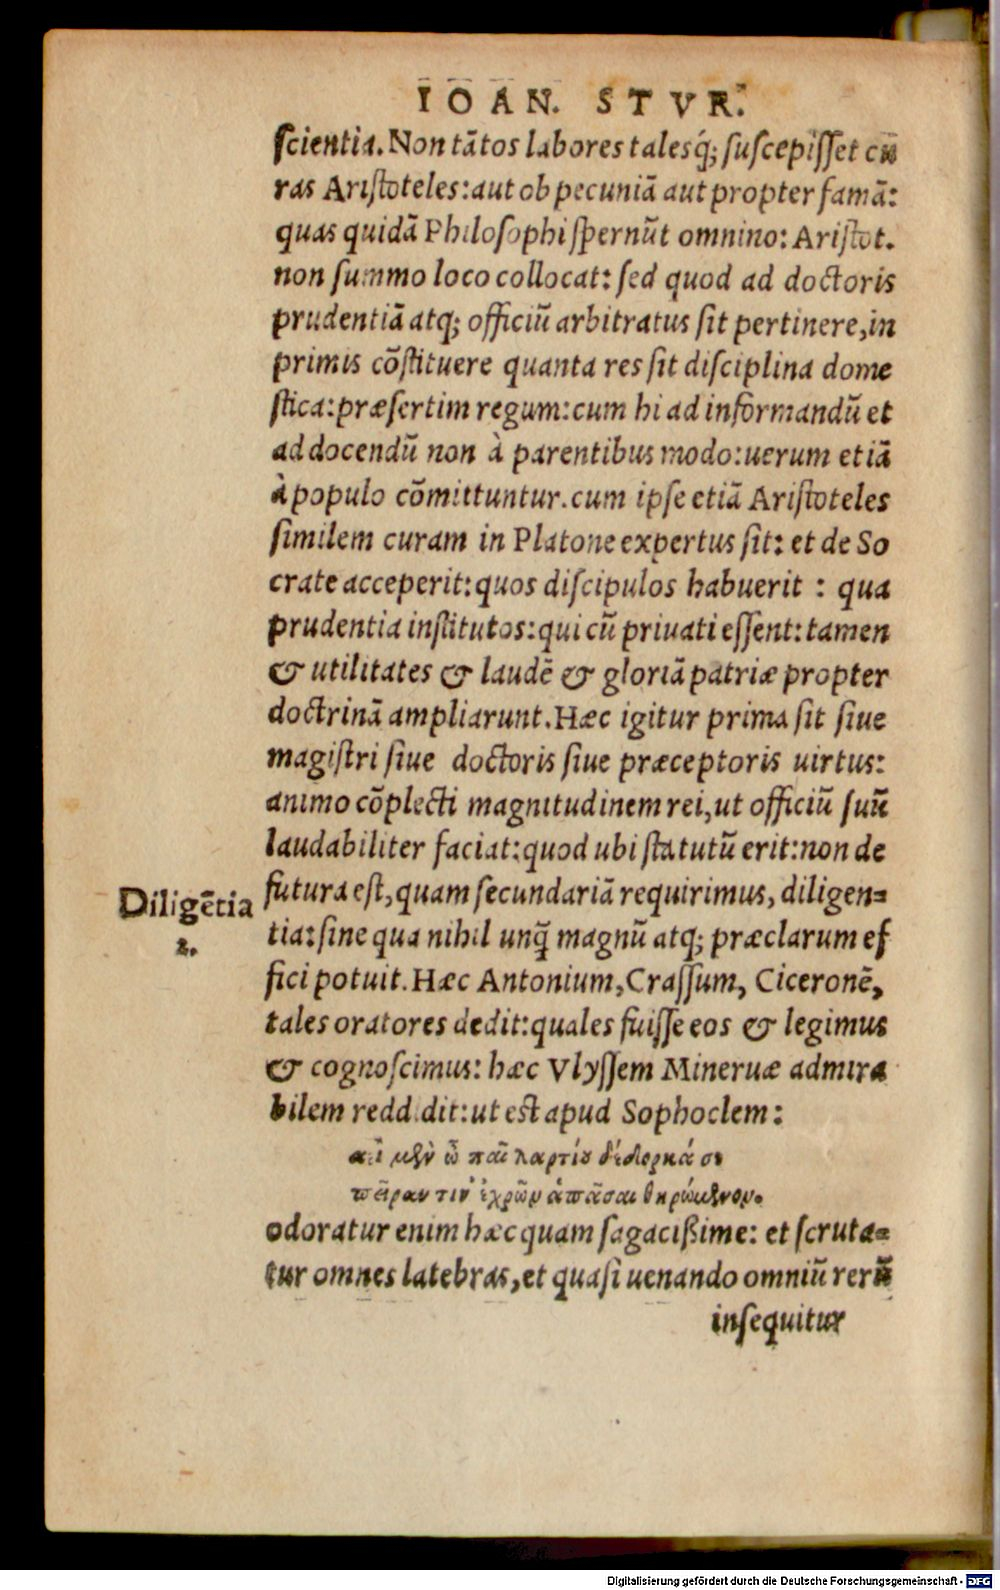 IOAN. STVR.
scientia. Non tãtos labores talesq́; suscepisset cu
ras Aristoteles: aut ob pecuniã aut propter famã:
quas quidã Philosophi spernũt omnino: Aristot.
non summo loco collocat: sed quod ad doctoris
prudentiã atq; officiũ arbitratus sit pertinere, in
primis cõstituere quanta res sit disciplina dome
stica: præsertim regum: cum hi ad informandũ et
ad docendũ non à parentibus modo: uerum etiã
à populo cõmittuntur. cum ipse etiã Aristoteles
similem curam in Platone expertus sit: et de So
crate acceperit: quos discipulos habuerit : qua
prudentia institutos: qui cũ priuati essent: tamen
& utilitates & laudẽ & gloriã patriæ propter
doctrinã ampliarunt. Hæc igitur prima sit siue
magistri siue doctoris siue præceptoris uirtus:
animo cõplecti magnitudinem rei, ut officiũ suũ
laudabiliter faciat: quod ubi statutũ erit: non de
futura est, quam secundariã requirimus, diligen=
Diligẽtia
2.
tia: sine qua nihil unq̃ magnũ atq; præclarum ef
fici potuit. Hæc Antonium, Crassum, Ciceronẽ,
tales oratores dedit: quales fuisse eos & legimus
& cognoscimus: hæc Vlyssem Mineruæ admira
bilem redd dit: ut est apud Sophoclem:
ἀεὶ μὲν ὦ παῖ λαρτίου δέδορκά σε
πεῖραν τιν' ἐχρῶν ἁπᾶσαι θηρώμενον.
odoratur enim hæc quam sagacißime: et scruta=
tur omnes latebras, et quasi uenando omniũ rerũ
insequitur
Digitalisierung gefördert durch die Deutsche Forschungsgemeinschaft - DFG